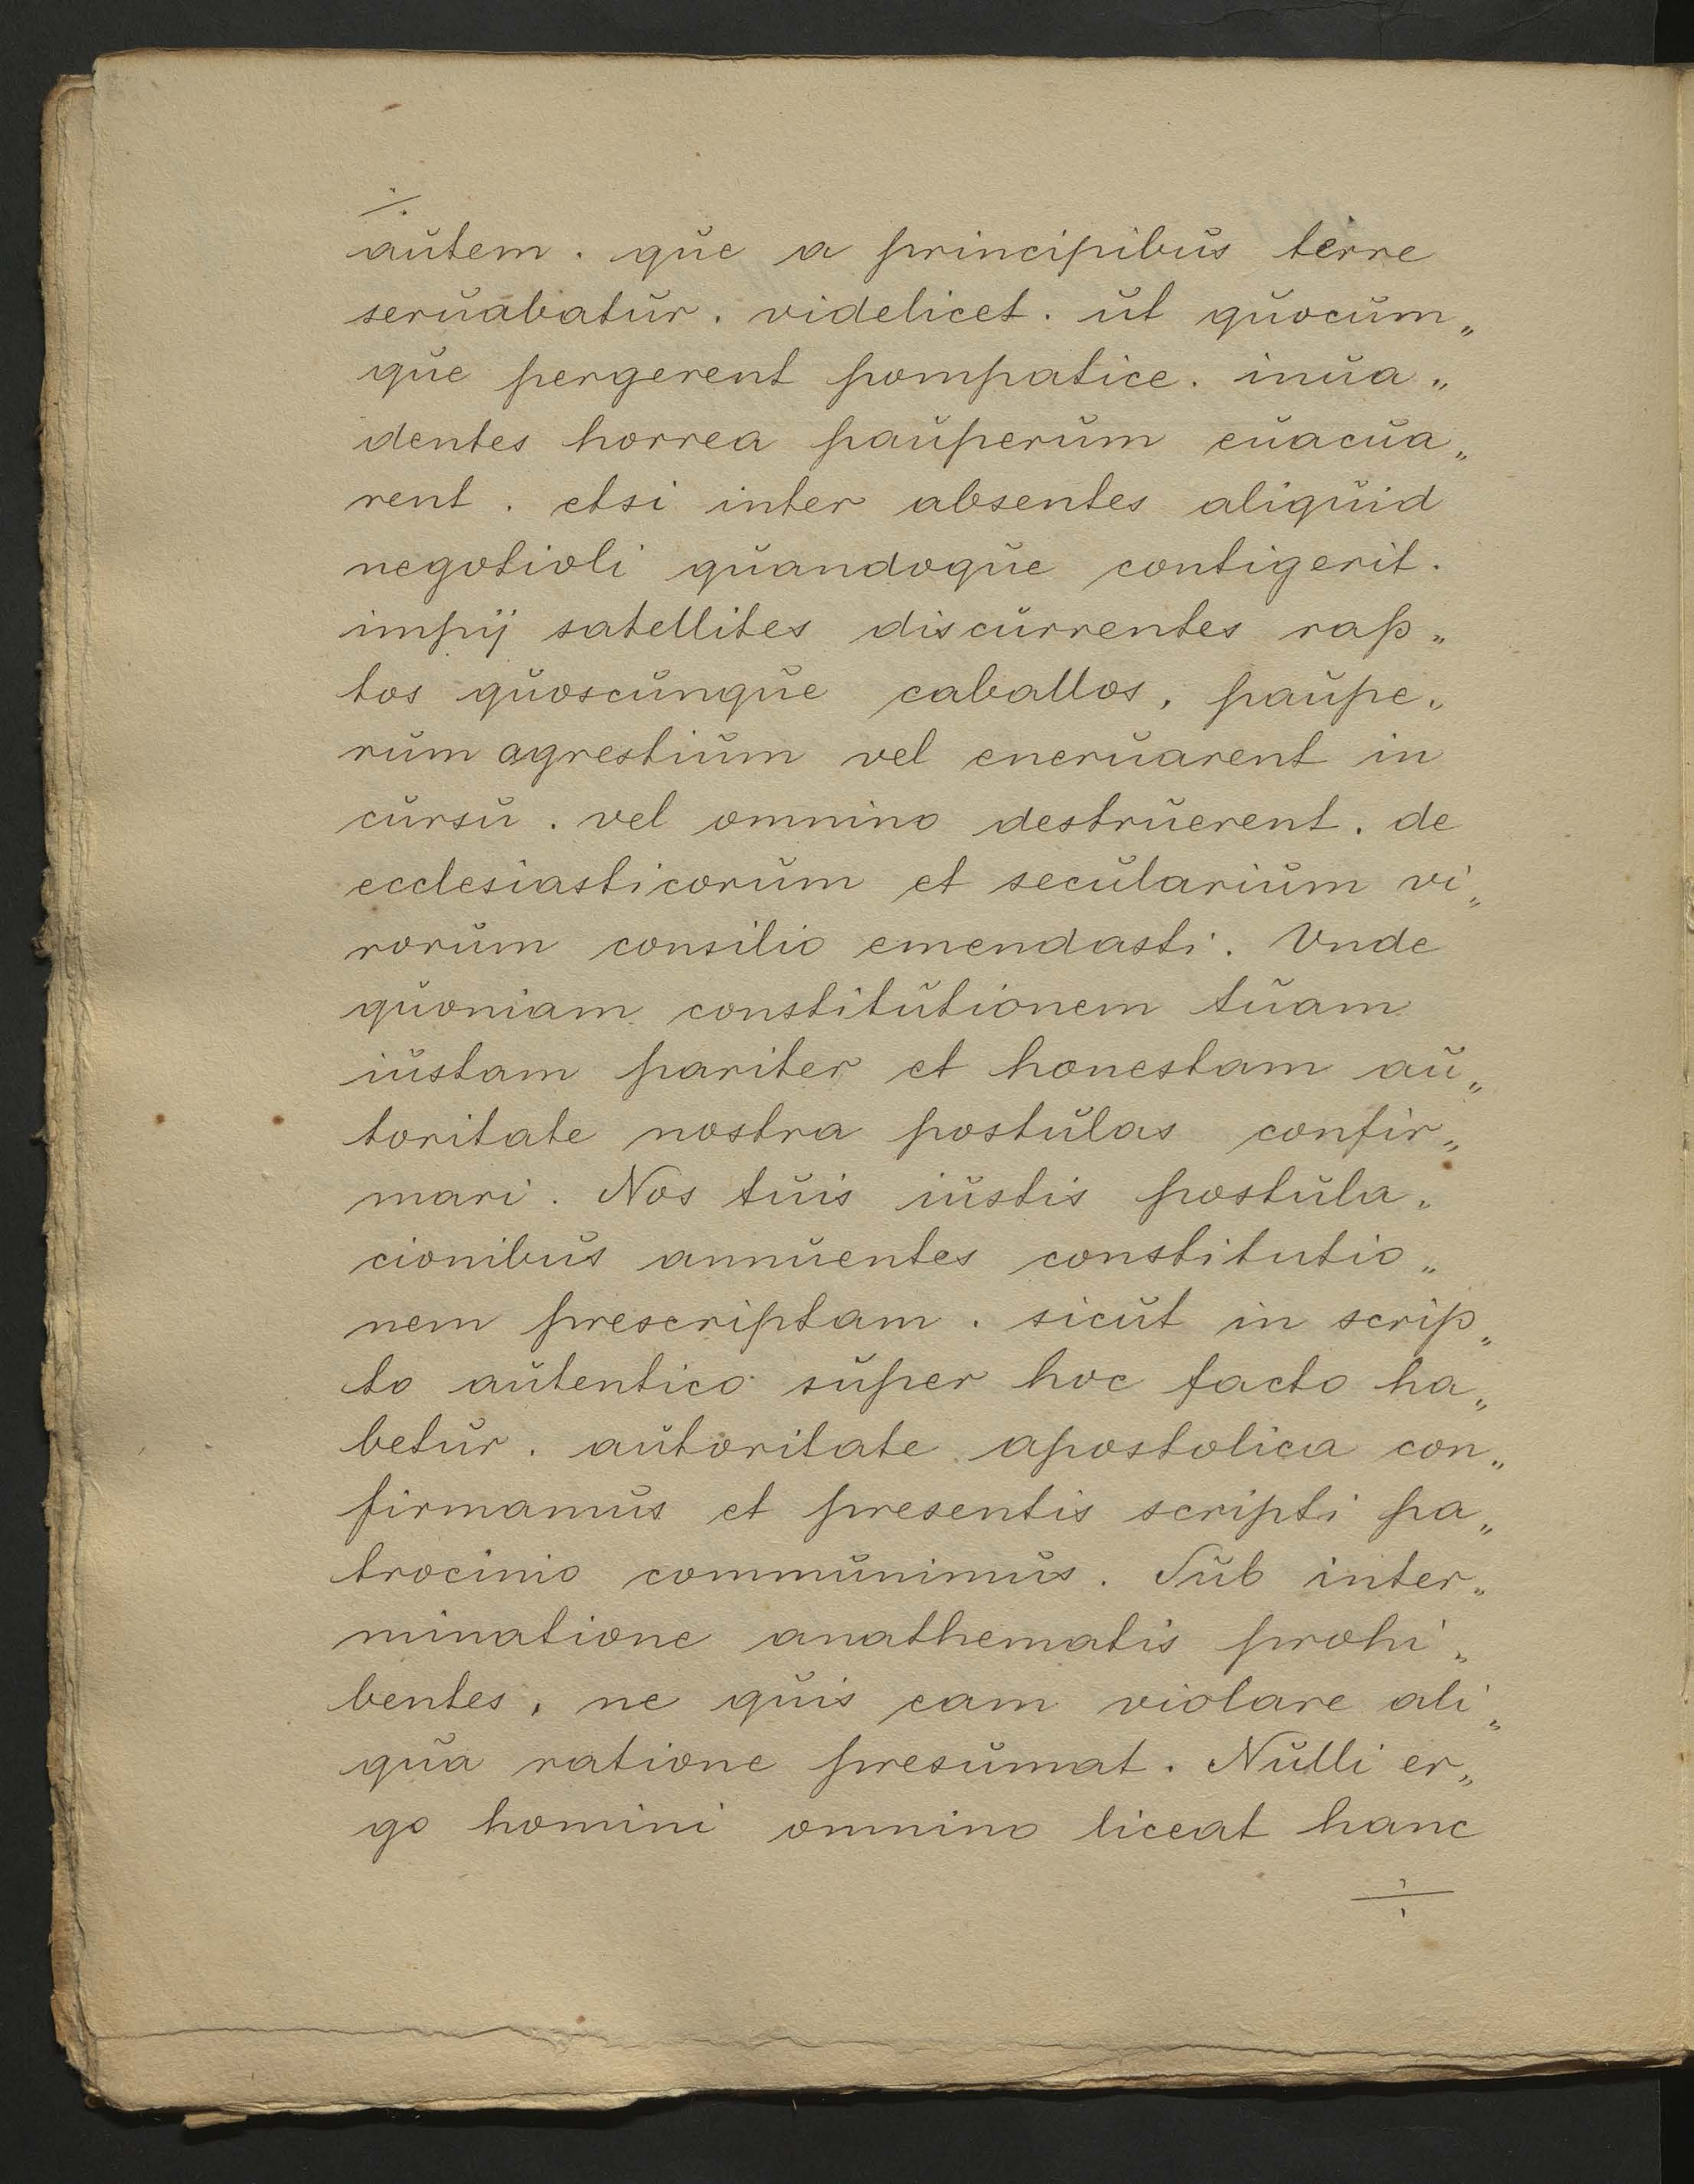 ./.
autem . que a principibus terre
seruabatur . videlicet . ut quocum„
que pergerent pompatice . inua„
dentes horrea pauperum euacua„
rent . etsi inter absentes aliquid
negotioli quandoque contigerit .
impij satellites discurrentes rap„
tos quoscunque caballos , paupe„
rum agrestium vel eneruarent in
cursu . vel omnino destruerent . de
ecclesiasticorum et secularium vi„
rorum consilio emendasti . Vnde
quoniam constitutionem tuam
iustam pariter et honestam au„
toritate nostra postulas confir„
mari . Nos tuis iustis postula„
cionibus annuentes constitutio„
nem prescriptam . sicut in scrip„
to autentico super hoc facto ha„
betur . autoritate apostolica con„
firmamus et presentis scripti pa„
trocinio communimus . Sub inter„
minatione anathematis prohi„
bentes , ne quis eam violare ali„
qua ratione presumat . Nulli er„
go homini omnino liceat hanc
./.